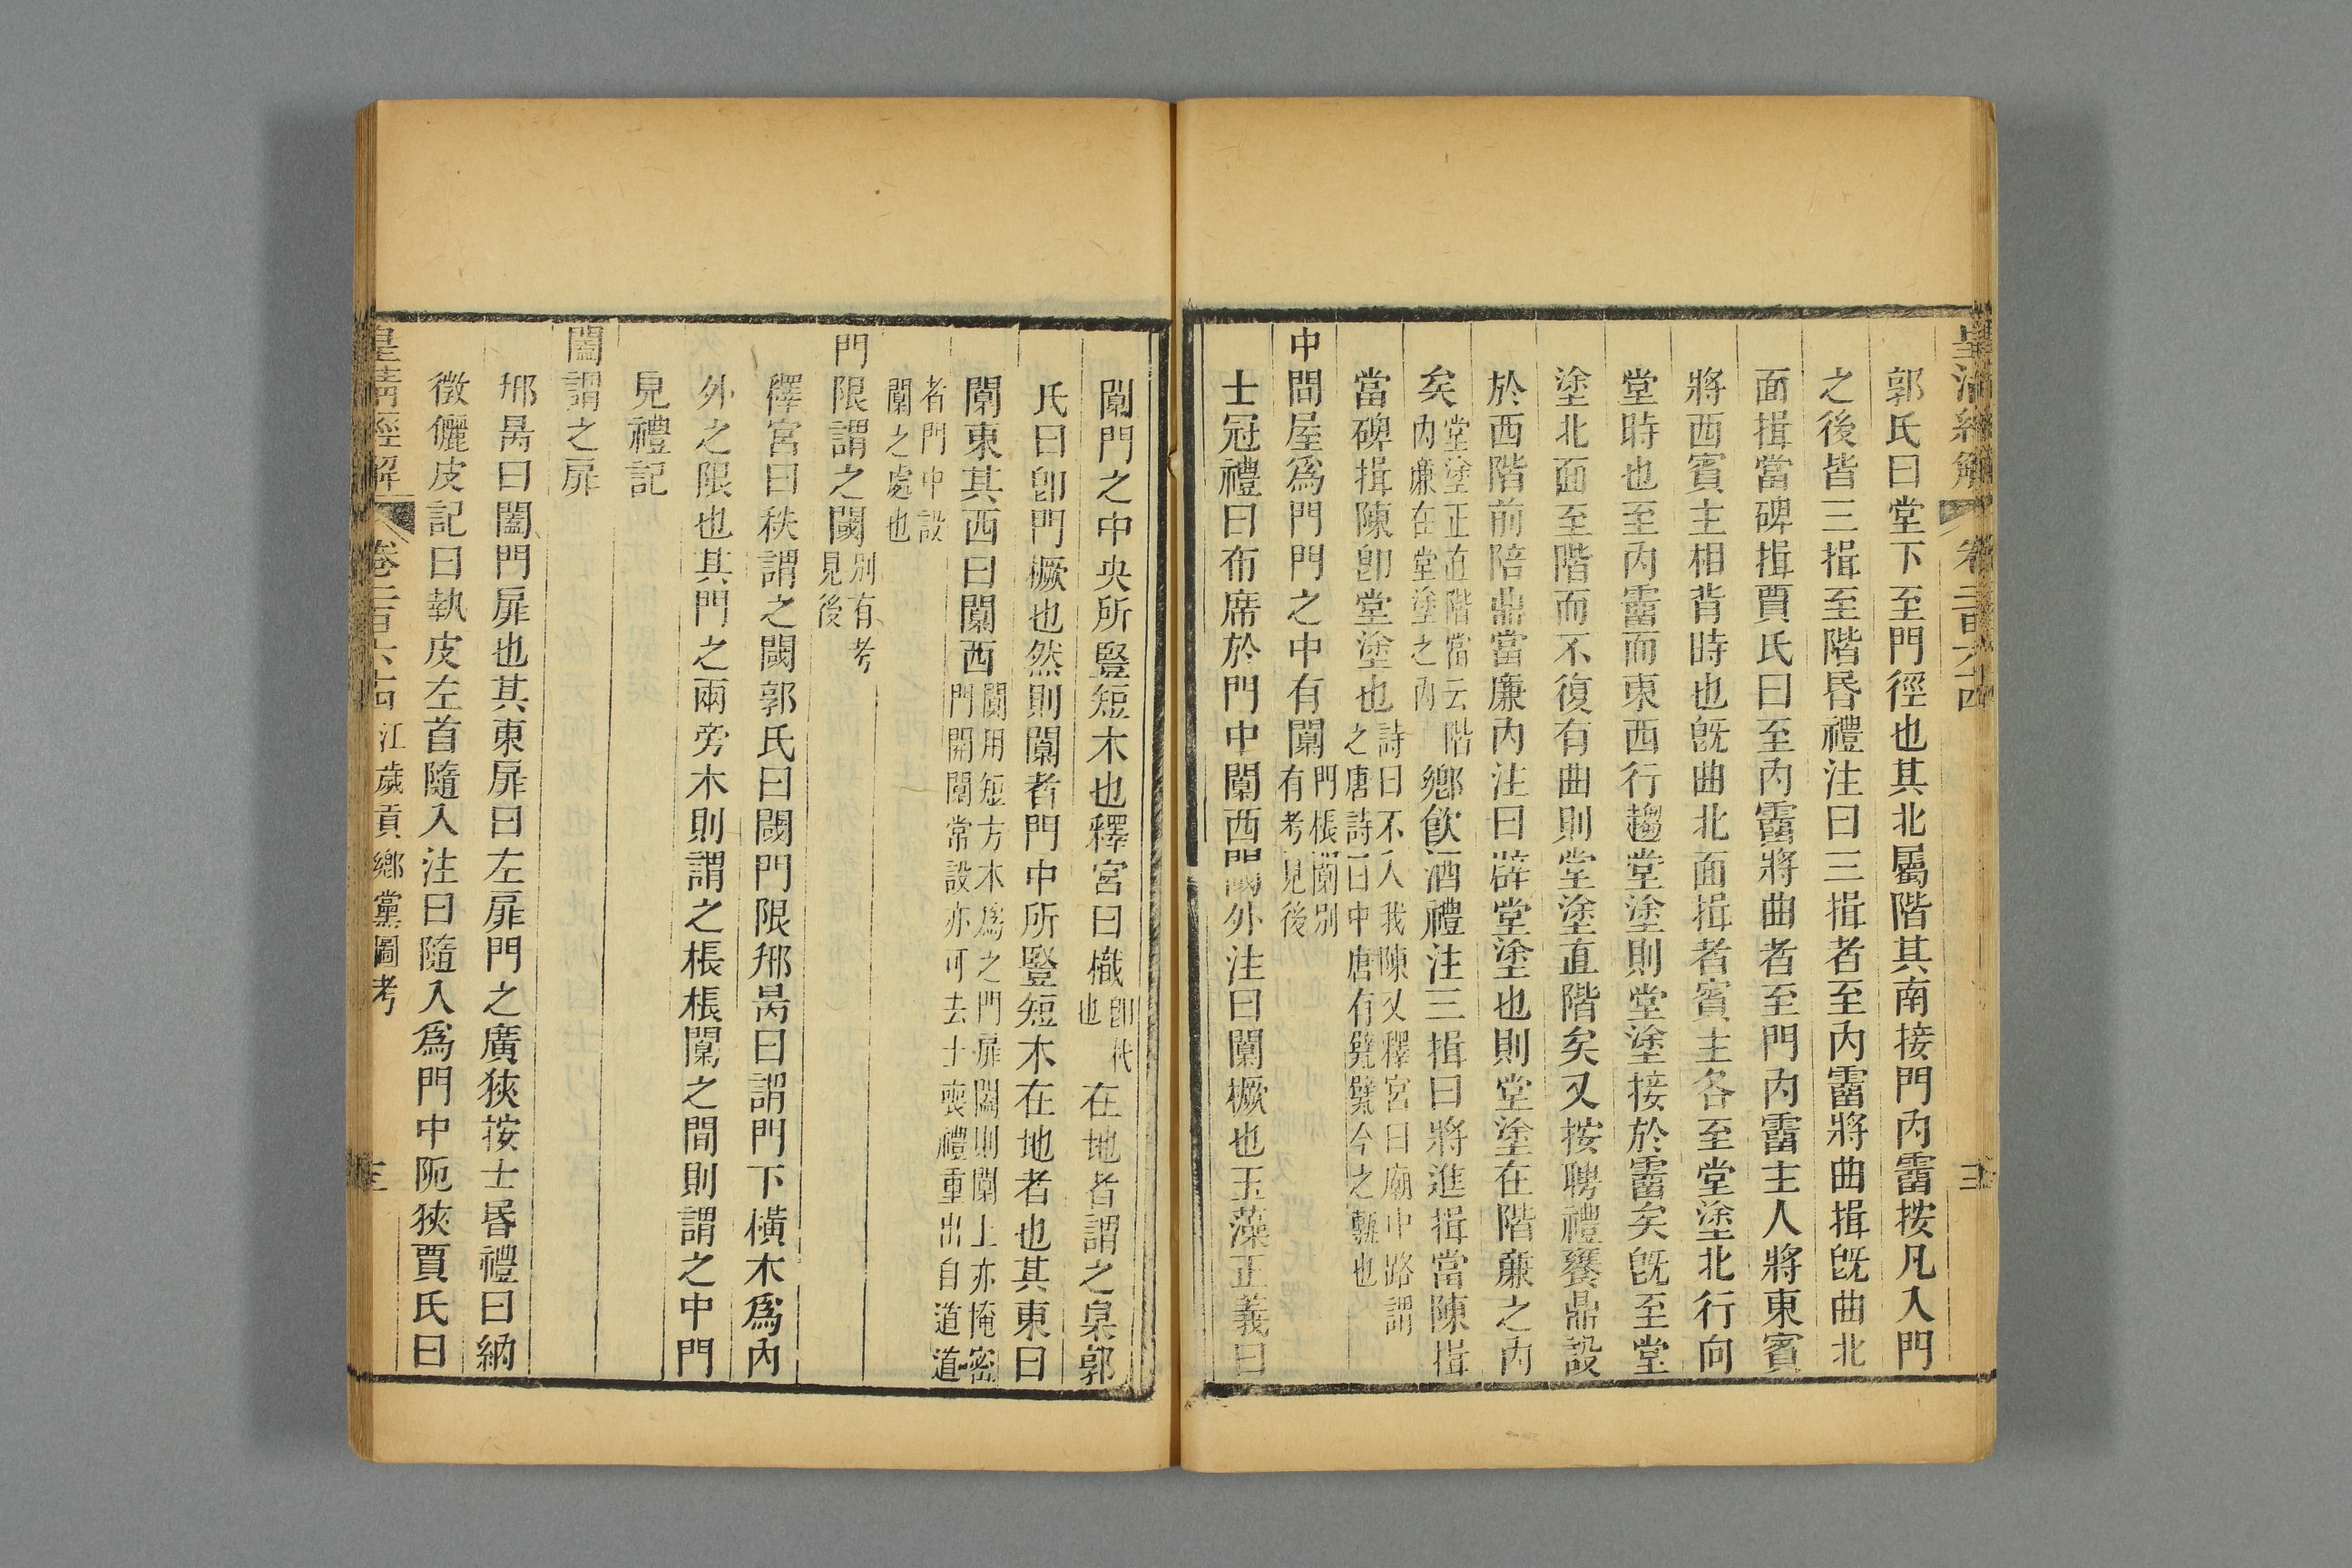 皇清經解 卷二百六十四
郭氏曰堂下至門徑也其北屬階其南接門內霤按凡入門
之後皆三揖至階昏禮注曰三揖者至內霤將曲揖旣曲北
面揖當碑揖賈氏曰至內霤將曲者至門內霤主人將東賓
將西賓主相背時也旣曲北面揖者賓主各至堂塗北行向
堂時也至內霤而東西行趨堂塗則堂塗接於霤矣旣至堂
塗北面至階而不復有曲則堂塗直階矣又按聘禮饔鼎設
於西階前陪鼎當廉內注曰辟堂塗也則堂塗在階廉之內
矣堂塗正直階當云階內廉在堂塗之內鄉飮酒禮注三揖曰將進揖當陳揖
當碑揖陳卽堂塗也詩曰不入我陳又釋宮曰廟中路謂之唐詩曰中唐有甓甓今之甎也
中間屋爲門門之中有闑門棖闑別有考見後
士冠禮曰布席於門中闑西閾外注曰闑橛也玉藻正義曰
闑門之中央所豎短木也釋宮曰樴卽杙也在地者謂之臬郭
氏曰卽門橛也然則闑者門中所豎短木在地者也其東曰
闑東其西曰闑西闑用短方木爲之門扉闔則闑上亦掩密門開闑常設亦可去士喪禮重出自道道
者門中設闑之處也
門限謂之閾別有考見後
釋宮曰柣謂之閾郭氏曰閾門限邢昺曰謂門下橫木爲內
外之限也其門之兩旁木則謂之棖棖闑之間則謂之中門
見禮記
闔謂之扉
邢昺曰闔門扉也其東扉曰左扉門之廣狹按士昏禮曰納
徵儷皮記曰執皮左首隨入注曰隨入爲門中阨狹賈氏曰
皇清經解 卷二百六十四 江歲貢鄉黨圖考